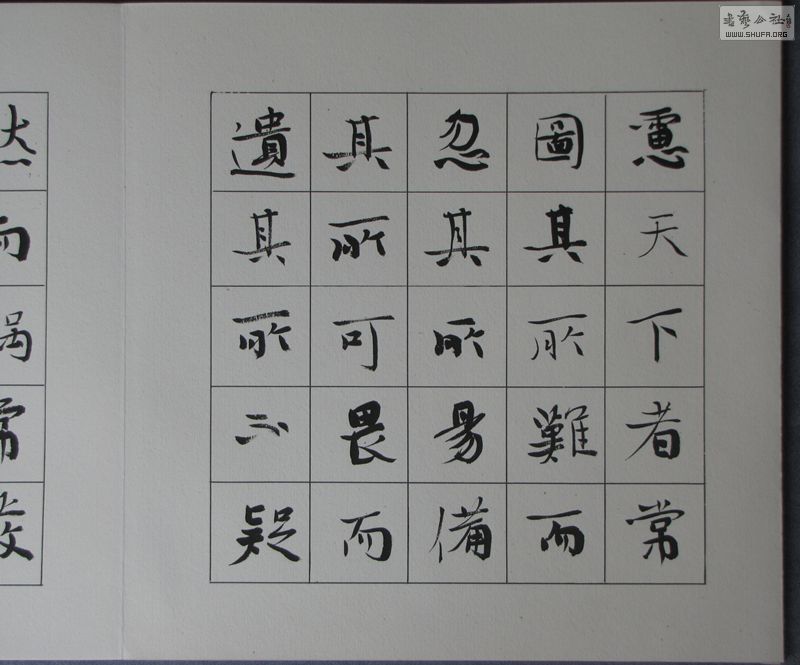 慮天下者常
圖其所難而
忽其所易備
其所可畏而
遺其所不疑
然而禍常發
書藝公社
WWW.SHUFA.ORG